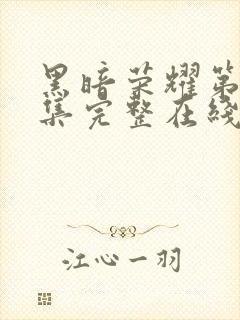 黑暗荣耀第
集完整在线
江心一羽